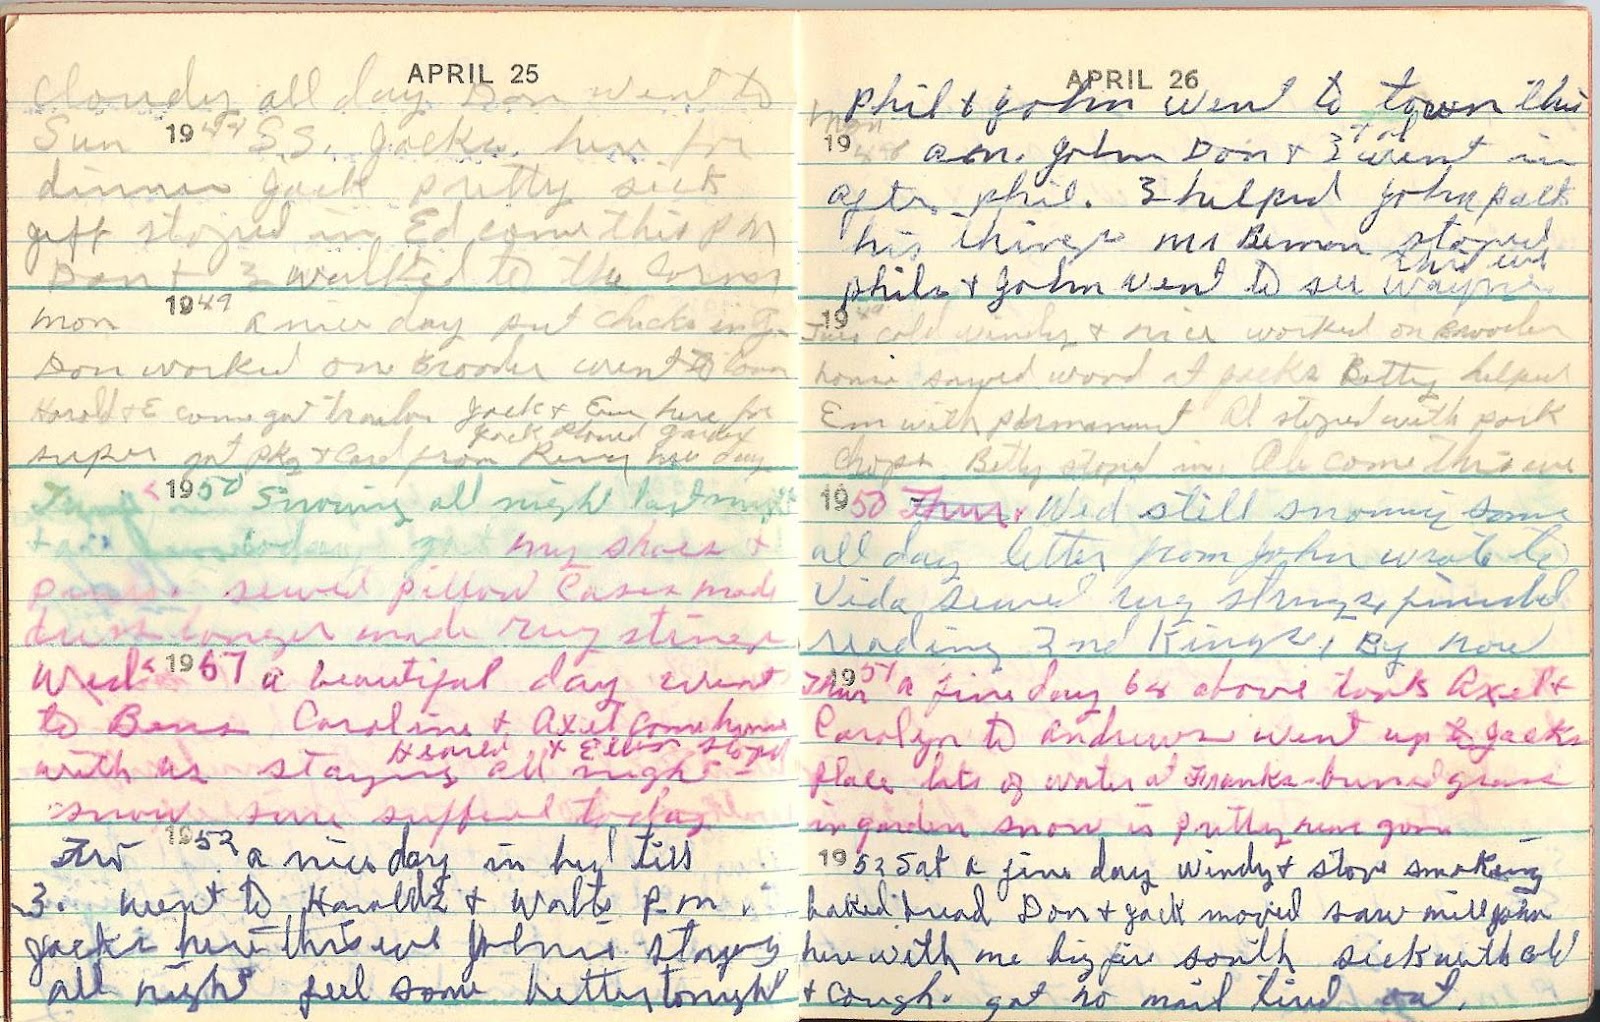 APRIL 25
Cloudy all day Don went to
Sun 1948 S.S. Jacks here for
dinner Jack pretty sick
Jeff stoped in Ed come this P M
Don + I walked to the Corner
1949
Mon a nice day put chicks in
Don worked on Brooder went to town
Harold + E come got Jack + Em here for
Jack plowed garden
super got pkg + Card from
1950 Snowing all night last night
+ today got my shoes +
sewed pillow Cases made
made rug strings
Wed 1951 a beautiful day went
to Bens Caroline + Axel come home
+ Ellen stoped
with us staying all night
snow sure suffered today
Fri 1952 a nice day in bed till
3. went to Haralds & Walts P.m.
Jacks here this eve Johnis staying
all night feel some better tonight
APRIL 26
Phil + John went to town this
Mon
1948 a.m. John Don + I + al went in
after Phil. I helped John pack
his things Mr Beman stoped
this eve
Phils + John went to see Wayne
1949
Tues cold windy + nice worked on Brooder
house sawed wood at jacks Betty helped
Em with permanant Al stoped with pork
chops Betty stoped in. Als come this eve
1950 Thur. Wed still snowing some
all day letter from John wrote to
Vida sewed rug strings, finished
reading 2nd Kings, By now
1951
Thur a fine day 68 above took Axel +
Carolyn to Andrews went up to Jacks
place lots of water at Franks - burned grass
in garden snow is pretty near gone
1952 Sat a fine day windy + stove smoking
baked bread Don + Jack moved saw mill John
here with me big fire south sick with cold
+ cough. got no mail tired out.